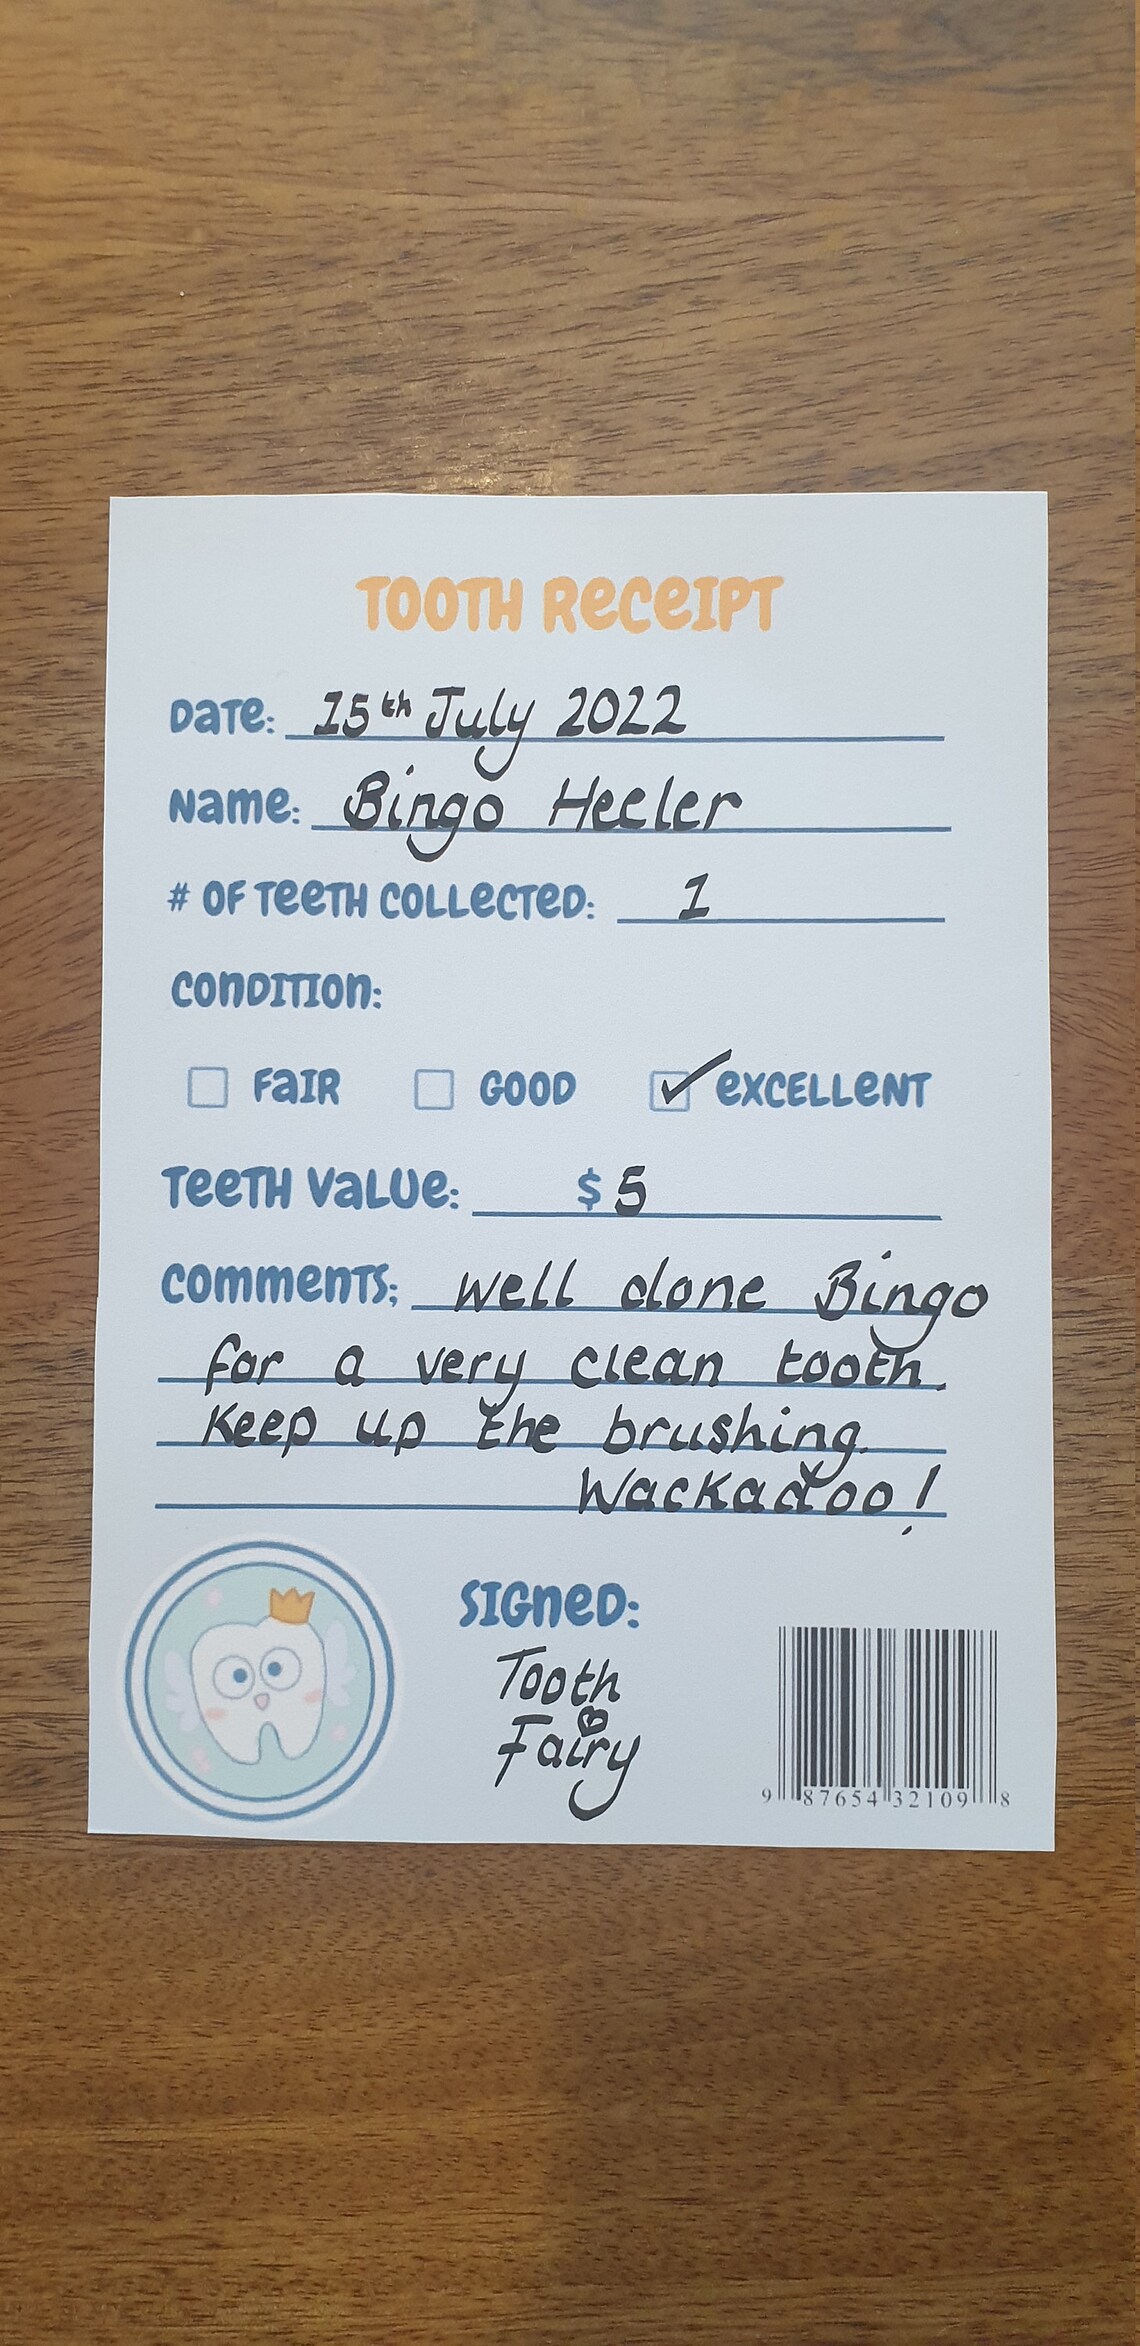 TOOTH RECEIPT
DATE: 15th July 2022
NAME: Bingo Heeler
# OF TEETH COLLECTED: 1
CONDITION:
FAIR GOOD EXCELLENT
TEETH VALUE: $5
COMMENTS: well done Bingo
for a very clean tooth.
Keep up the brushing.
Wackadoo!
SIGNED:
Tooth
Fairy
9 87654 32109 8